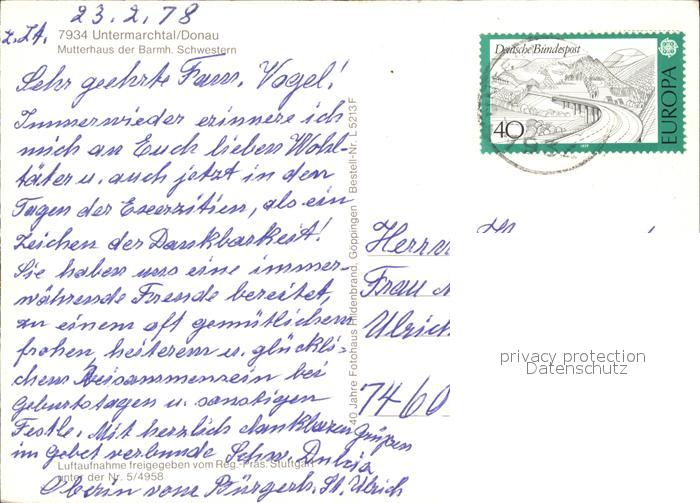 23.2.78
z.Zt. 7934 Untermarchtal/Donau
Mutterhaus der Barmh. Schwestern
Sehr geehrte Fam. Vogel!
Immerwieder erinnere ich
mich an Euch lieben Wohl-
täter u. auch jetzt in den
Tagen der Exerzitien, als ein
Zeichen der Dankbarkeit!
Sie haben uns eine immer-
währende Freude bereitet,
zu einem oft gemütlichem
frohen, heiterem u. glückli-
chem Beisammensein bei
Geburtstagen u. sonstigen
Feste. Mit herzlich dankbaren Grüßen
im Gebet verbunde Schw. Dulcia
Oberin vom Bürgerh. St. Ulrich
Luftaufnahme freigegeben vom Reg.-Präs. Stuttgart
unter der Nr. 5/4958
40 Jahre Fotohaus Hildenbrand, Göppingen Bestell-Nr. L 5213 F
Deutsche Bundespost
40
EUROPA
Herrn
Frau
Ulrich
7460
privacy protection
Datenschutz